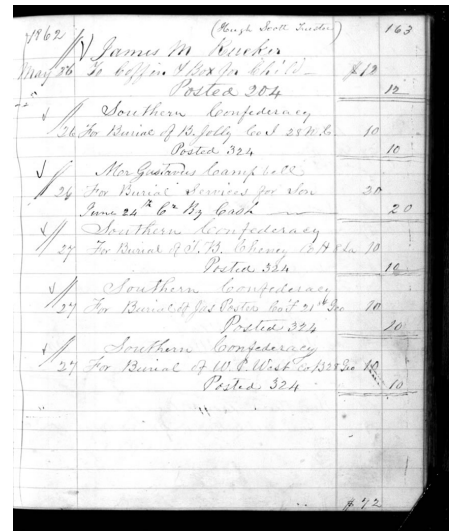 1862 (Hugh Scott Trustee) 163
James M Rucker
May 26 To Coffin & Box for Child $12
Posted 204 12
Southern Confederacy
26 For Burial of B. Jolly Co I 28 N.C 10
Posted 324 10
Gustavus Campbell
26 For Burial Services for Son 20
June 24th Cr By Cash 20
Southern Confederacy
27 For Burial of T. B. Cheney Co H 10
Posted 324 10
Southern Confederacy
27 For Burial of Jas Co F 21st Geo 10
Posted 324 10
Southern Confederacy
27 For Burial of W. P. West Co B 28 Geo 10
Posted 324 10
" "
$ 72